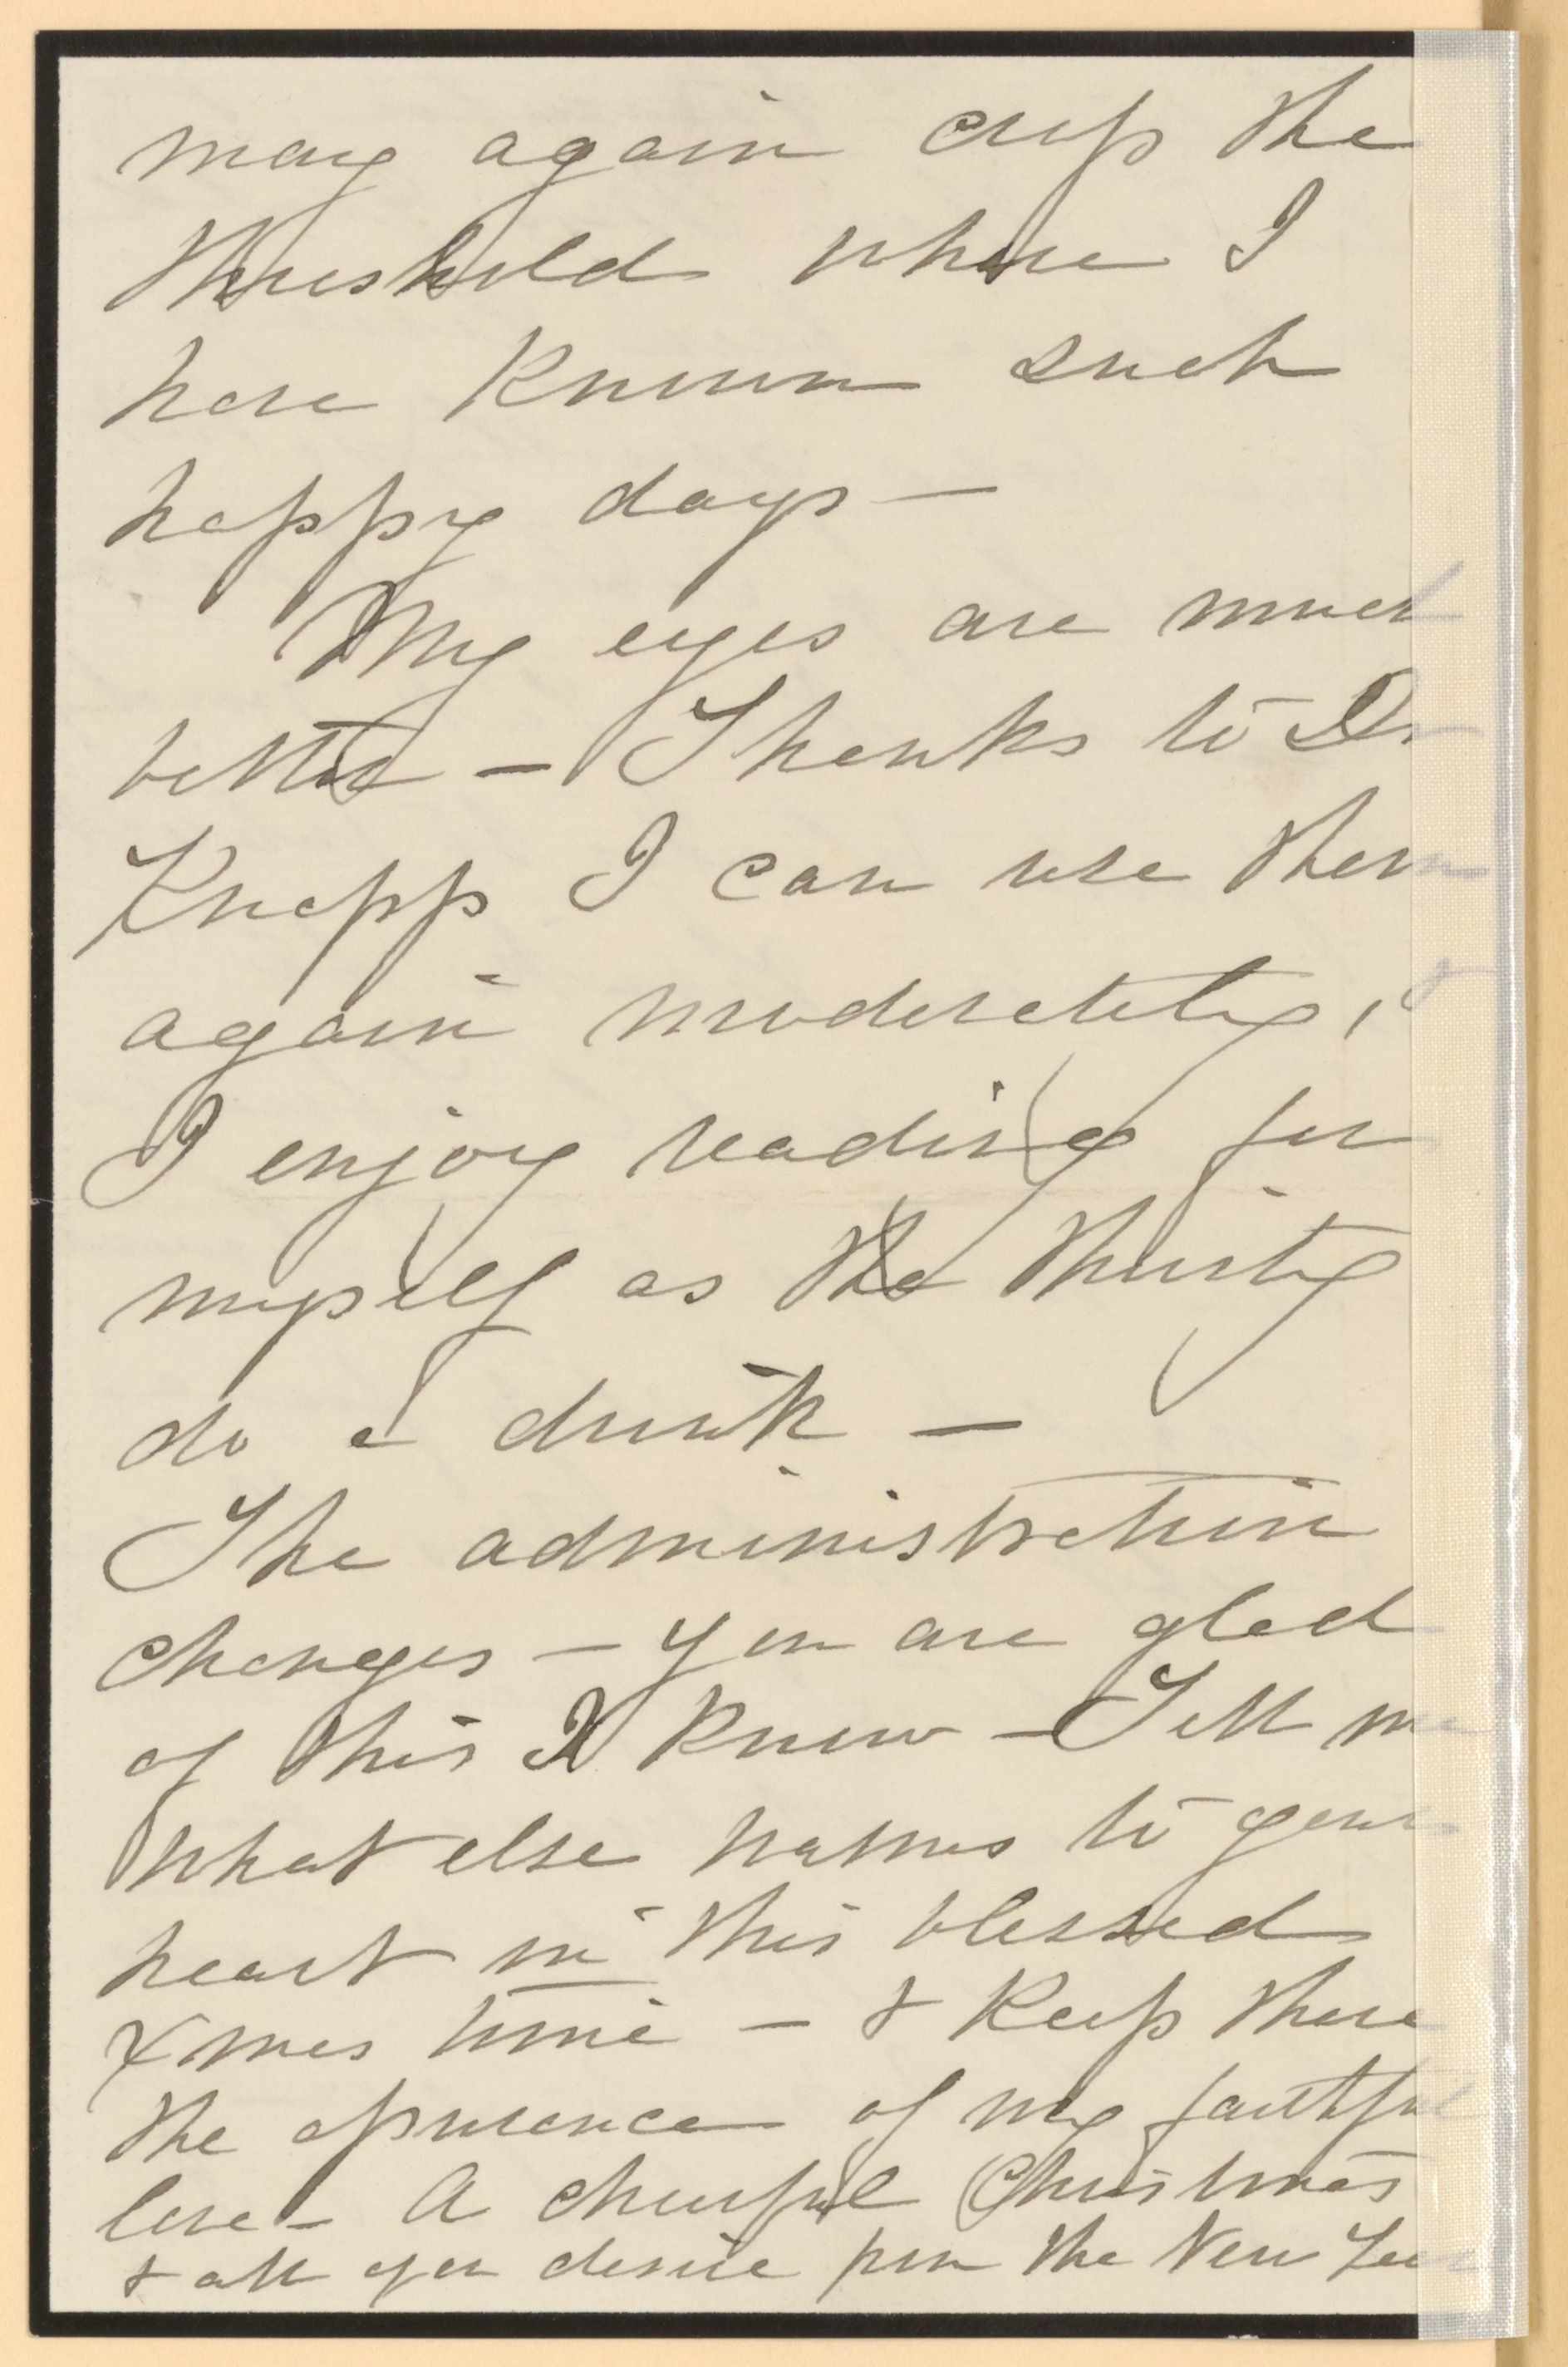 may again cross the
threshold where I
have known such
happy days —
My eyes are much
better — Thanks to Dr
Knapp I can use them
again moderately, &
I enjoy reading for
myself as the thirsty
do a drink —
The administration
changes — you are glad
of this I know — Tell me
what else warms to your
heart in this blessed
Xmas time — & keep there
the assurance of my faithful
love — A cheerful Christmas
& all you desire from the New Year